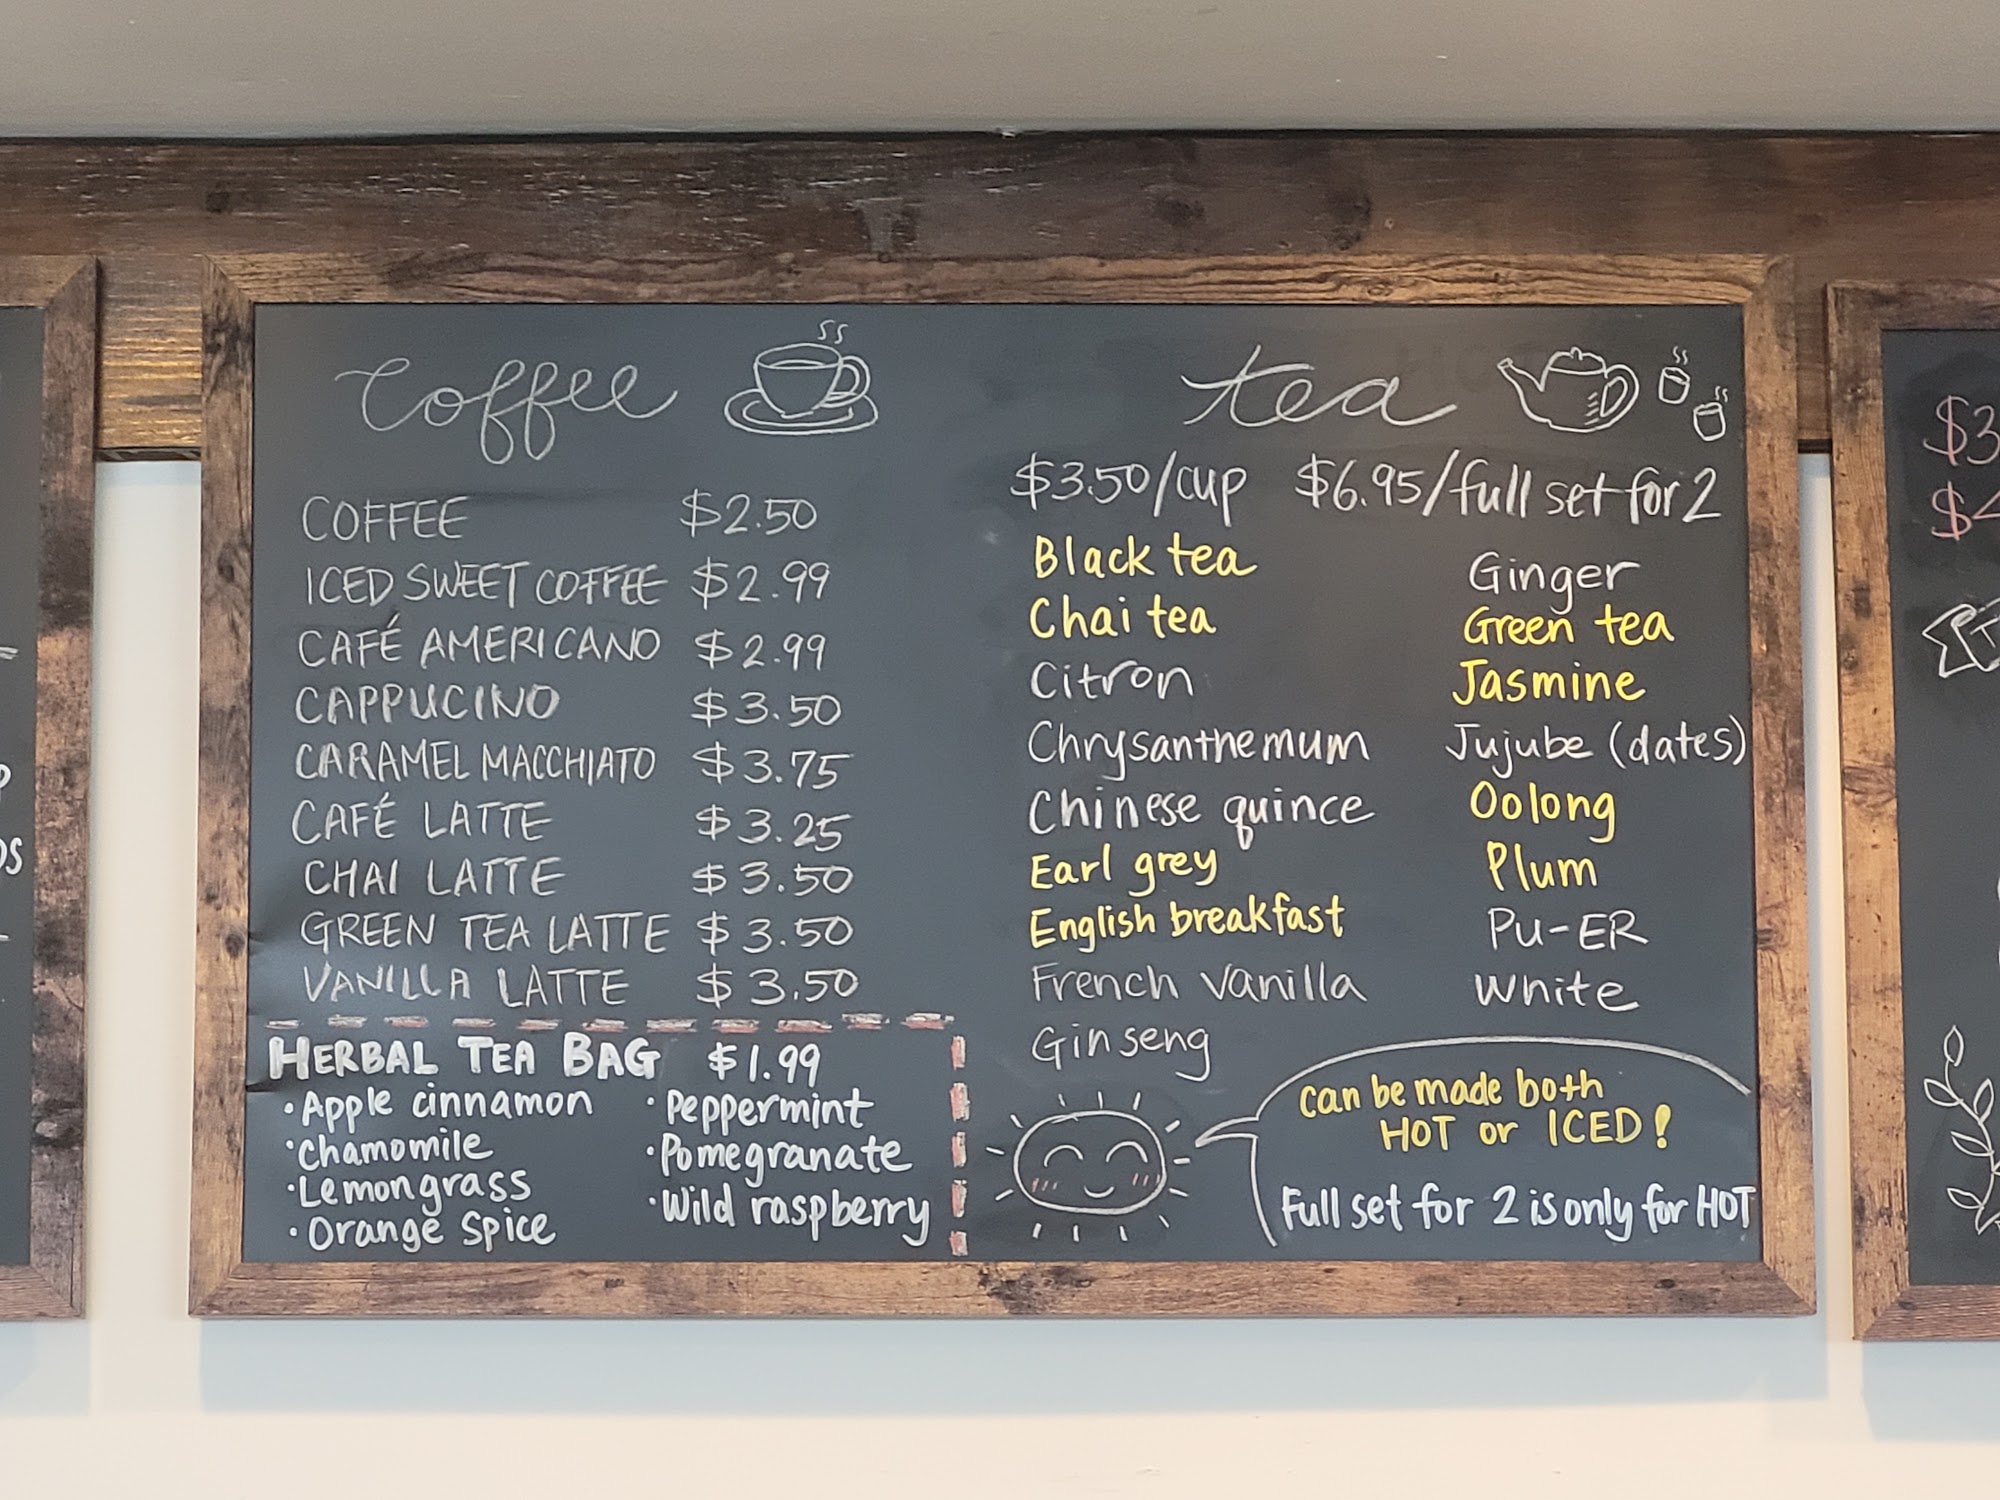 Coffee
COFFEE $2.50
ICED SWEET COFFEE $2.99
CAFÉ AMERICANO $2.99
CAPPUCINO $3.50
CARAMEL MACCHIATO $3.75
CAFÉ LATTE $3.25
CHAI LATTE $3.50
GREEN TEA LATTE $3.50
VANILLA LATTE $3.50
HERBAL TEA BAG $1.99
• Apple cinnamon
• Chamomile
• Lemongrass
• Orange spice
• Peppermint
• Pomegranate
• Wild raspberry
tea
$3.50/cup $6.95/full set for 2
Black tea
Chai tea
Citron
Chrysanthemum
Chinese quince
Earl grey
English breakfast
French vanilla
Ginseng
Ginger
Green tea
Jasmine
Jujube (dates)
Oolong
Plum
PU-ER
White
can be made both
HOT or ICED!
Full set for 2 is only for HOT